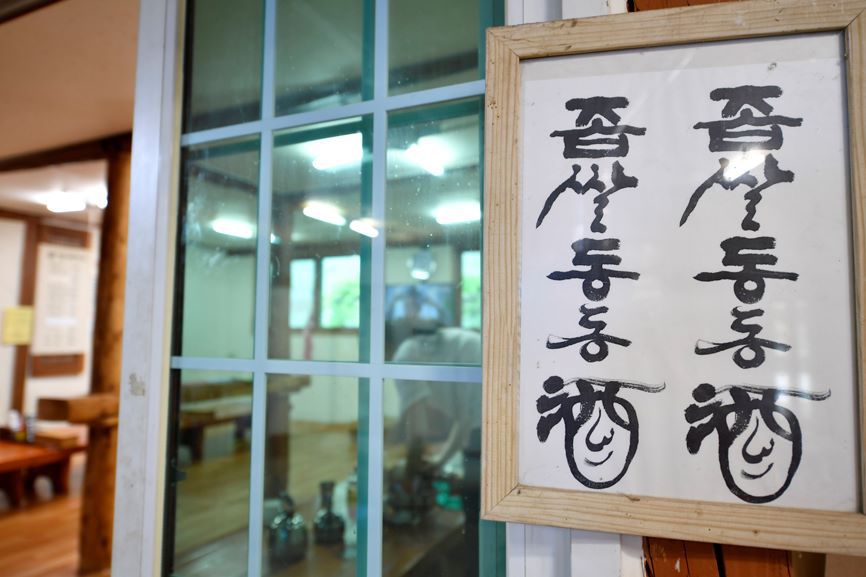 좁쌀동동酒
좁쌀동동酒